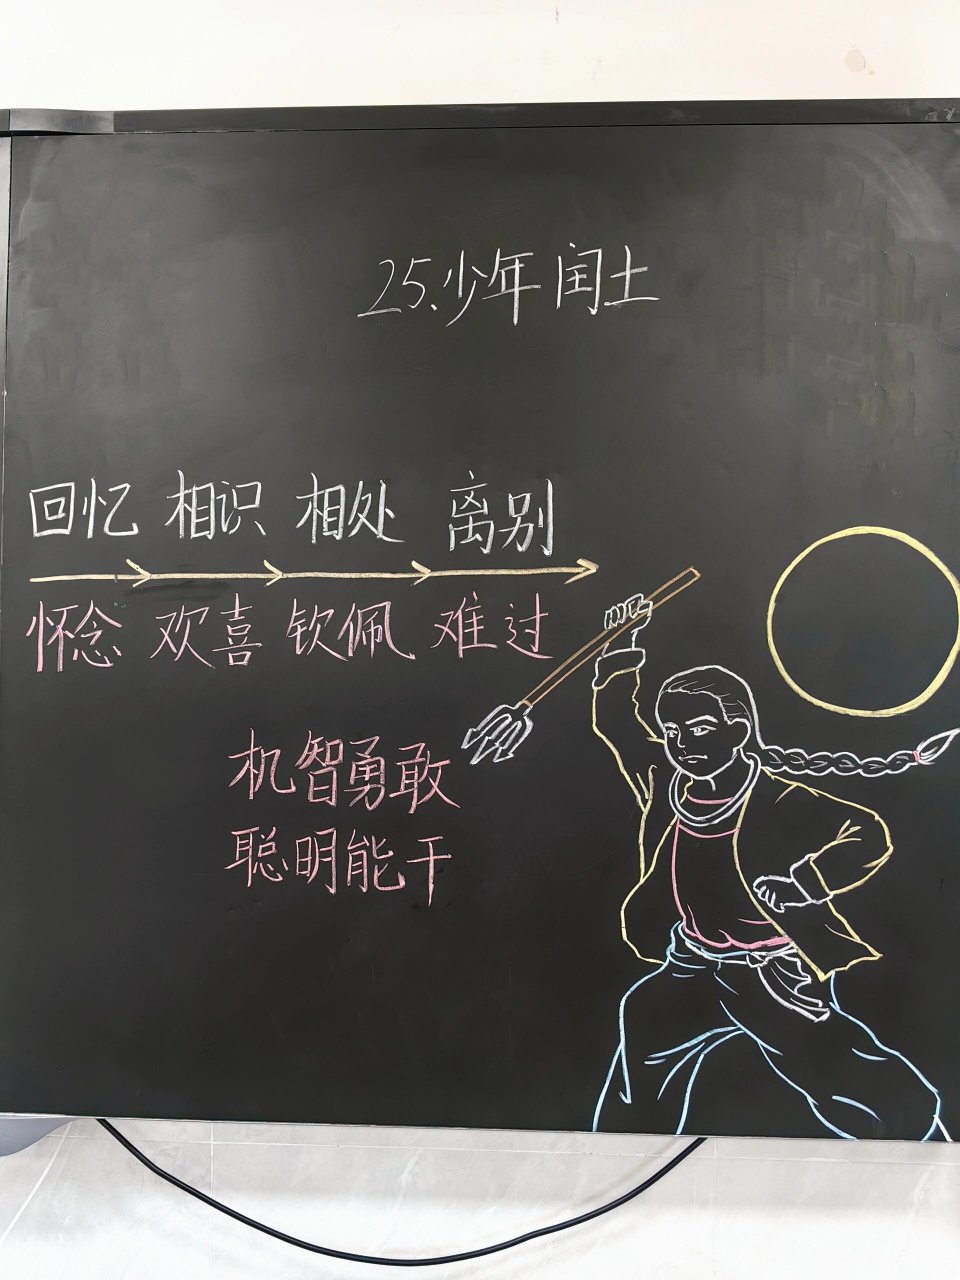 25.少年闰土
回忆 相识 相处 离别
怀念 欢喜 钦佩 难过
机智勇敢
聪明能干